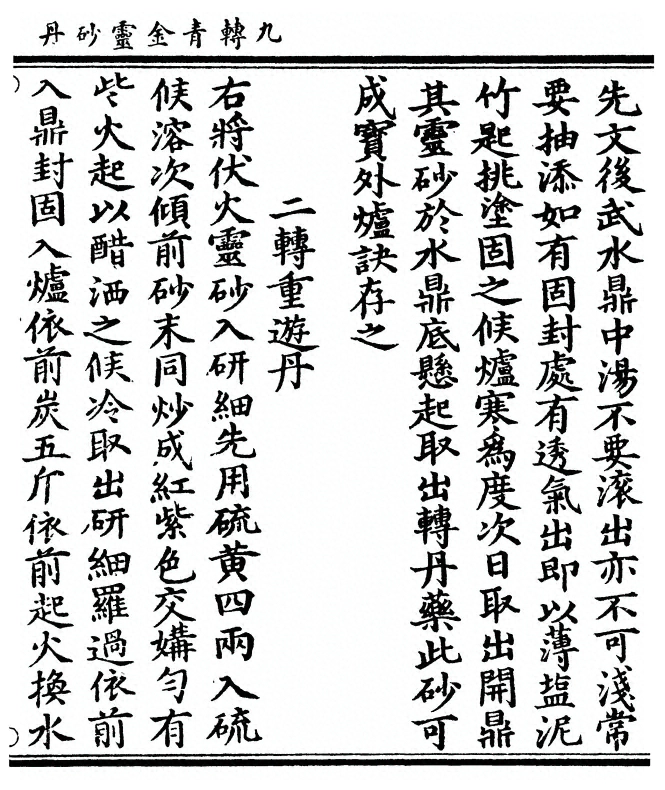 九轉青金靈砂丹
先文後武水鼎中湯不要滚出亦不可淺常
要抽添如有固封處有透氣出即以薄塩泥
竹匙挑塗固之候爐寒為度次日取出開鼎
其靈砂於水鼎底懸起取出轉丹藥此砂可
成寳外爐訣存之
二轉重遊丹
右將伏火靈砂入研細先用硫黄四兩入硫
候溶次傾前砂末同炒成紅紫色交媾勻有
些火起以醋洒之候冷取出研細羅過依前
入鼎封固入爐依前炭五斤依前起火換水